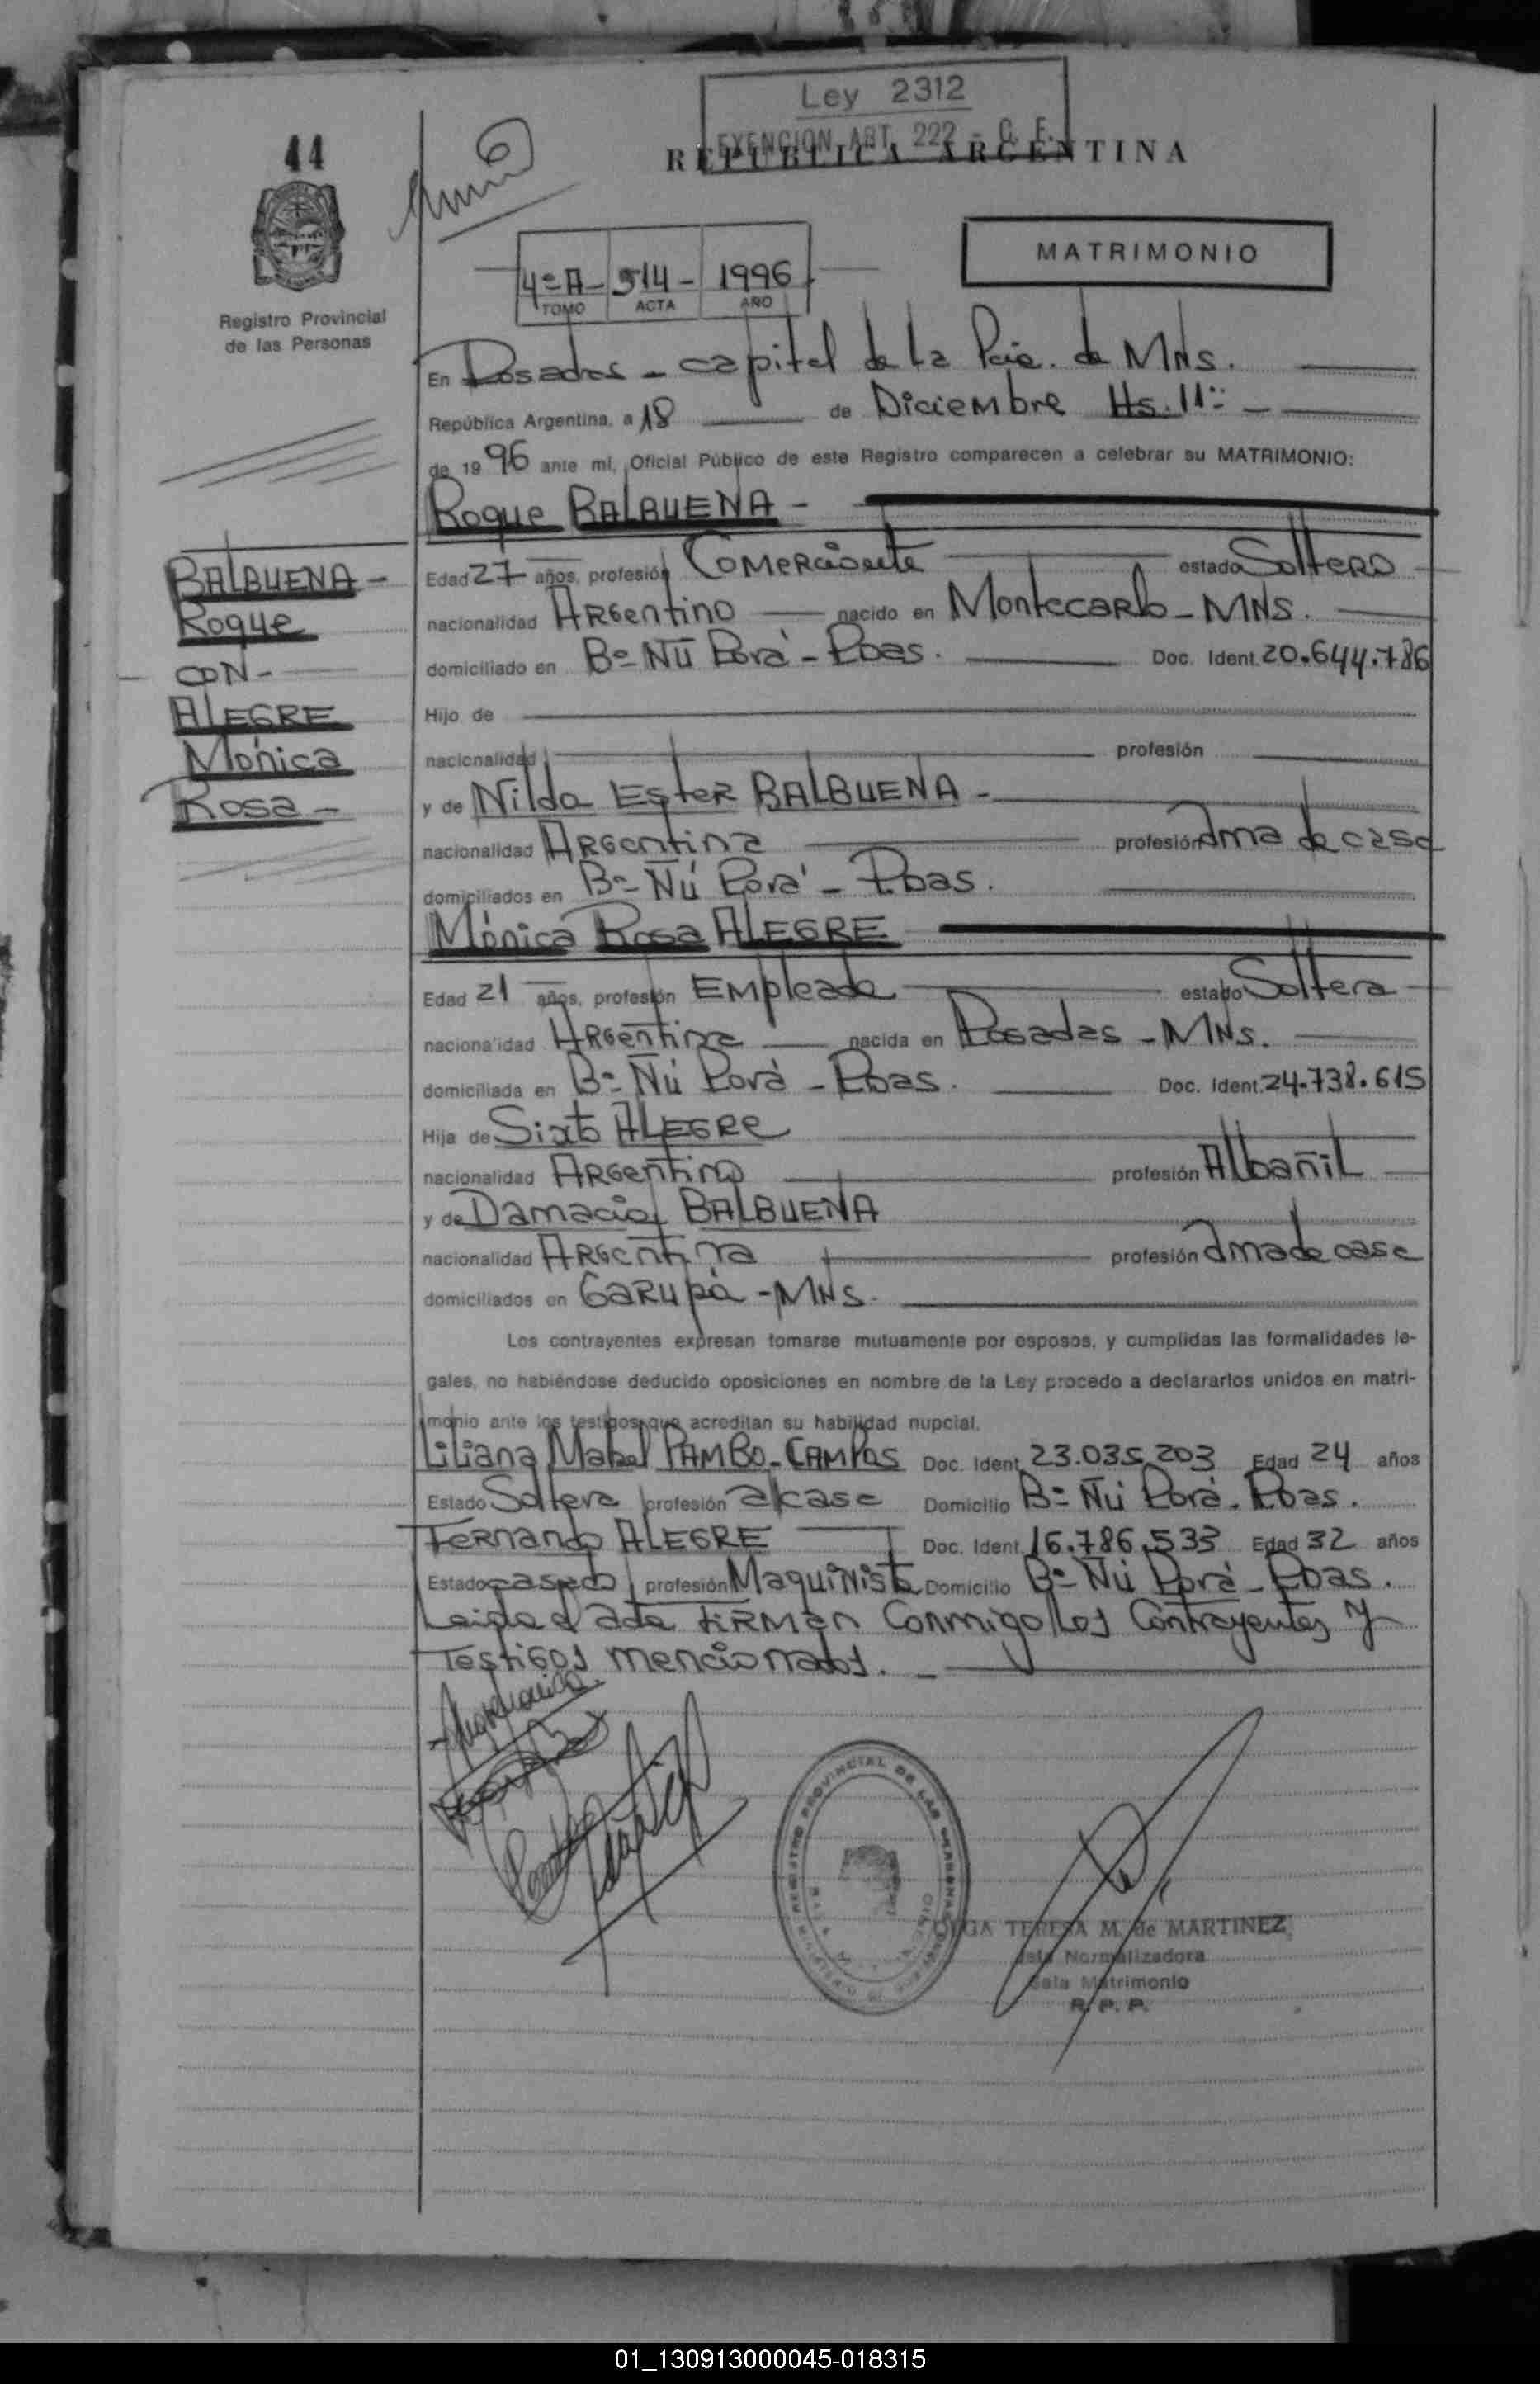 Ley 2312
EXENCION ART. 222 - C. F.
REPUBLICA ARGENTINA
44
MATRIMONIO
4º A - 514 - 1996
TOMO ACTA AÑO
Registro Provincial
de las Personas
En Posadas - capital de la Pcia. de MNS.
República Argentina, a 18 de Diciembre Hs. 11:
de 1996 ante mí, Oficial Público de este Registro comparecen a celebrar su MATRIMONIO:
Roque BALBUENA -
BALBUENA -
Roque
CON -
ALEGRE
Mónica
Rosa -
Edad 27 años, profesión Comerciante estado Soltero
nacionalidad Argentino nacido en Montecarlo - MNS.
domiciliado en Bº Ñu Porá - Pdas. Doc. Ident. 20.644.786
Hijo de
nacionalidad profesión
y de Nilda Ester BALBUENA -
nacionalidad Argentina profesión ama de casa
domiciliados en Bº Ñú Porá - Pdas.
Mónica Rosa ALEGRE
Edad 21 años, profesión Empleada estado Soltera
nacionalidad Argentina nacida en Posadas - MNS.
domiciliada en Bº Ñú Porá - Pdas. Doc. Ident. 24.738.615
Hija de Sixto ALEGRE
nacionalidad Argentino profesión Albañil
y de Damacia BALBUENA
nacionalidad Argentina profesión ama de casa
domiciliados en Garupá - MNS.
Los contrayentes expresan tomarse mutuamente por esposos, y cumplidas las formalidades le-
gales, no habiéndose deducido oposiciones en nombre de la Ley procedo a declararlos unidos en matri-
monio ante los testigos que acreditan su habilidad nupcial.
Liliana Mabel PAMBO-CAMPOS Doc. Ident. 23.035.203 Edad 24 años
Estado Soltera profesión a/casa Domicilio Bº Ñú Porá - Pdas.
Fernando ALEGRE Doc. Ident. 16.786.533 Edad 32 años
Estado casado profesión Maquinista Domicilio Bº Ñú Porá - Pdas.
Leida el acta firman conmigo los contrayentes y
testigos mencionados. -
REGISTRO PROVINCIAL DE LAS PERSONAS
OLGA TERESA M. de MARTINEZ
Normalizadora
Sala Matrimonio
R. P. P.
01_130913000045-018315